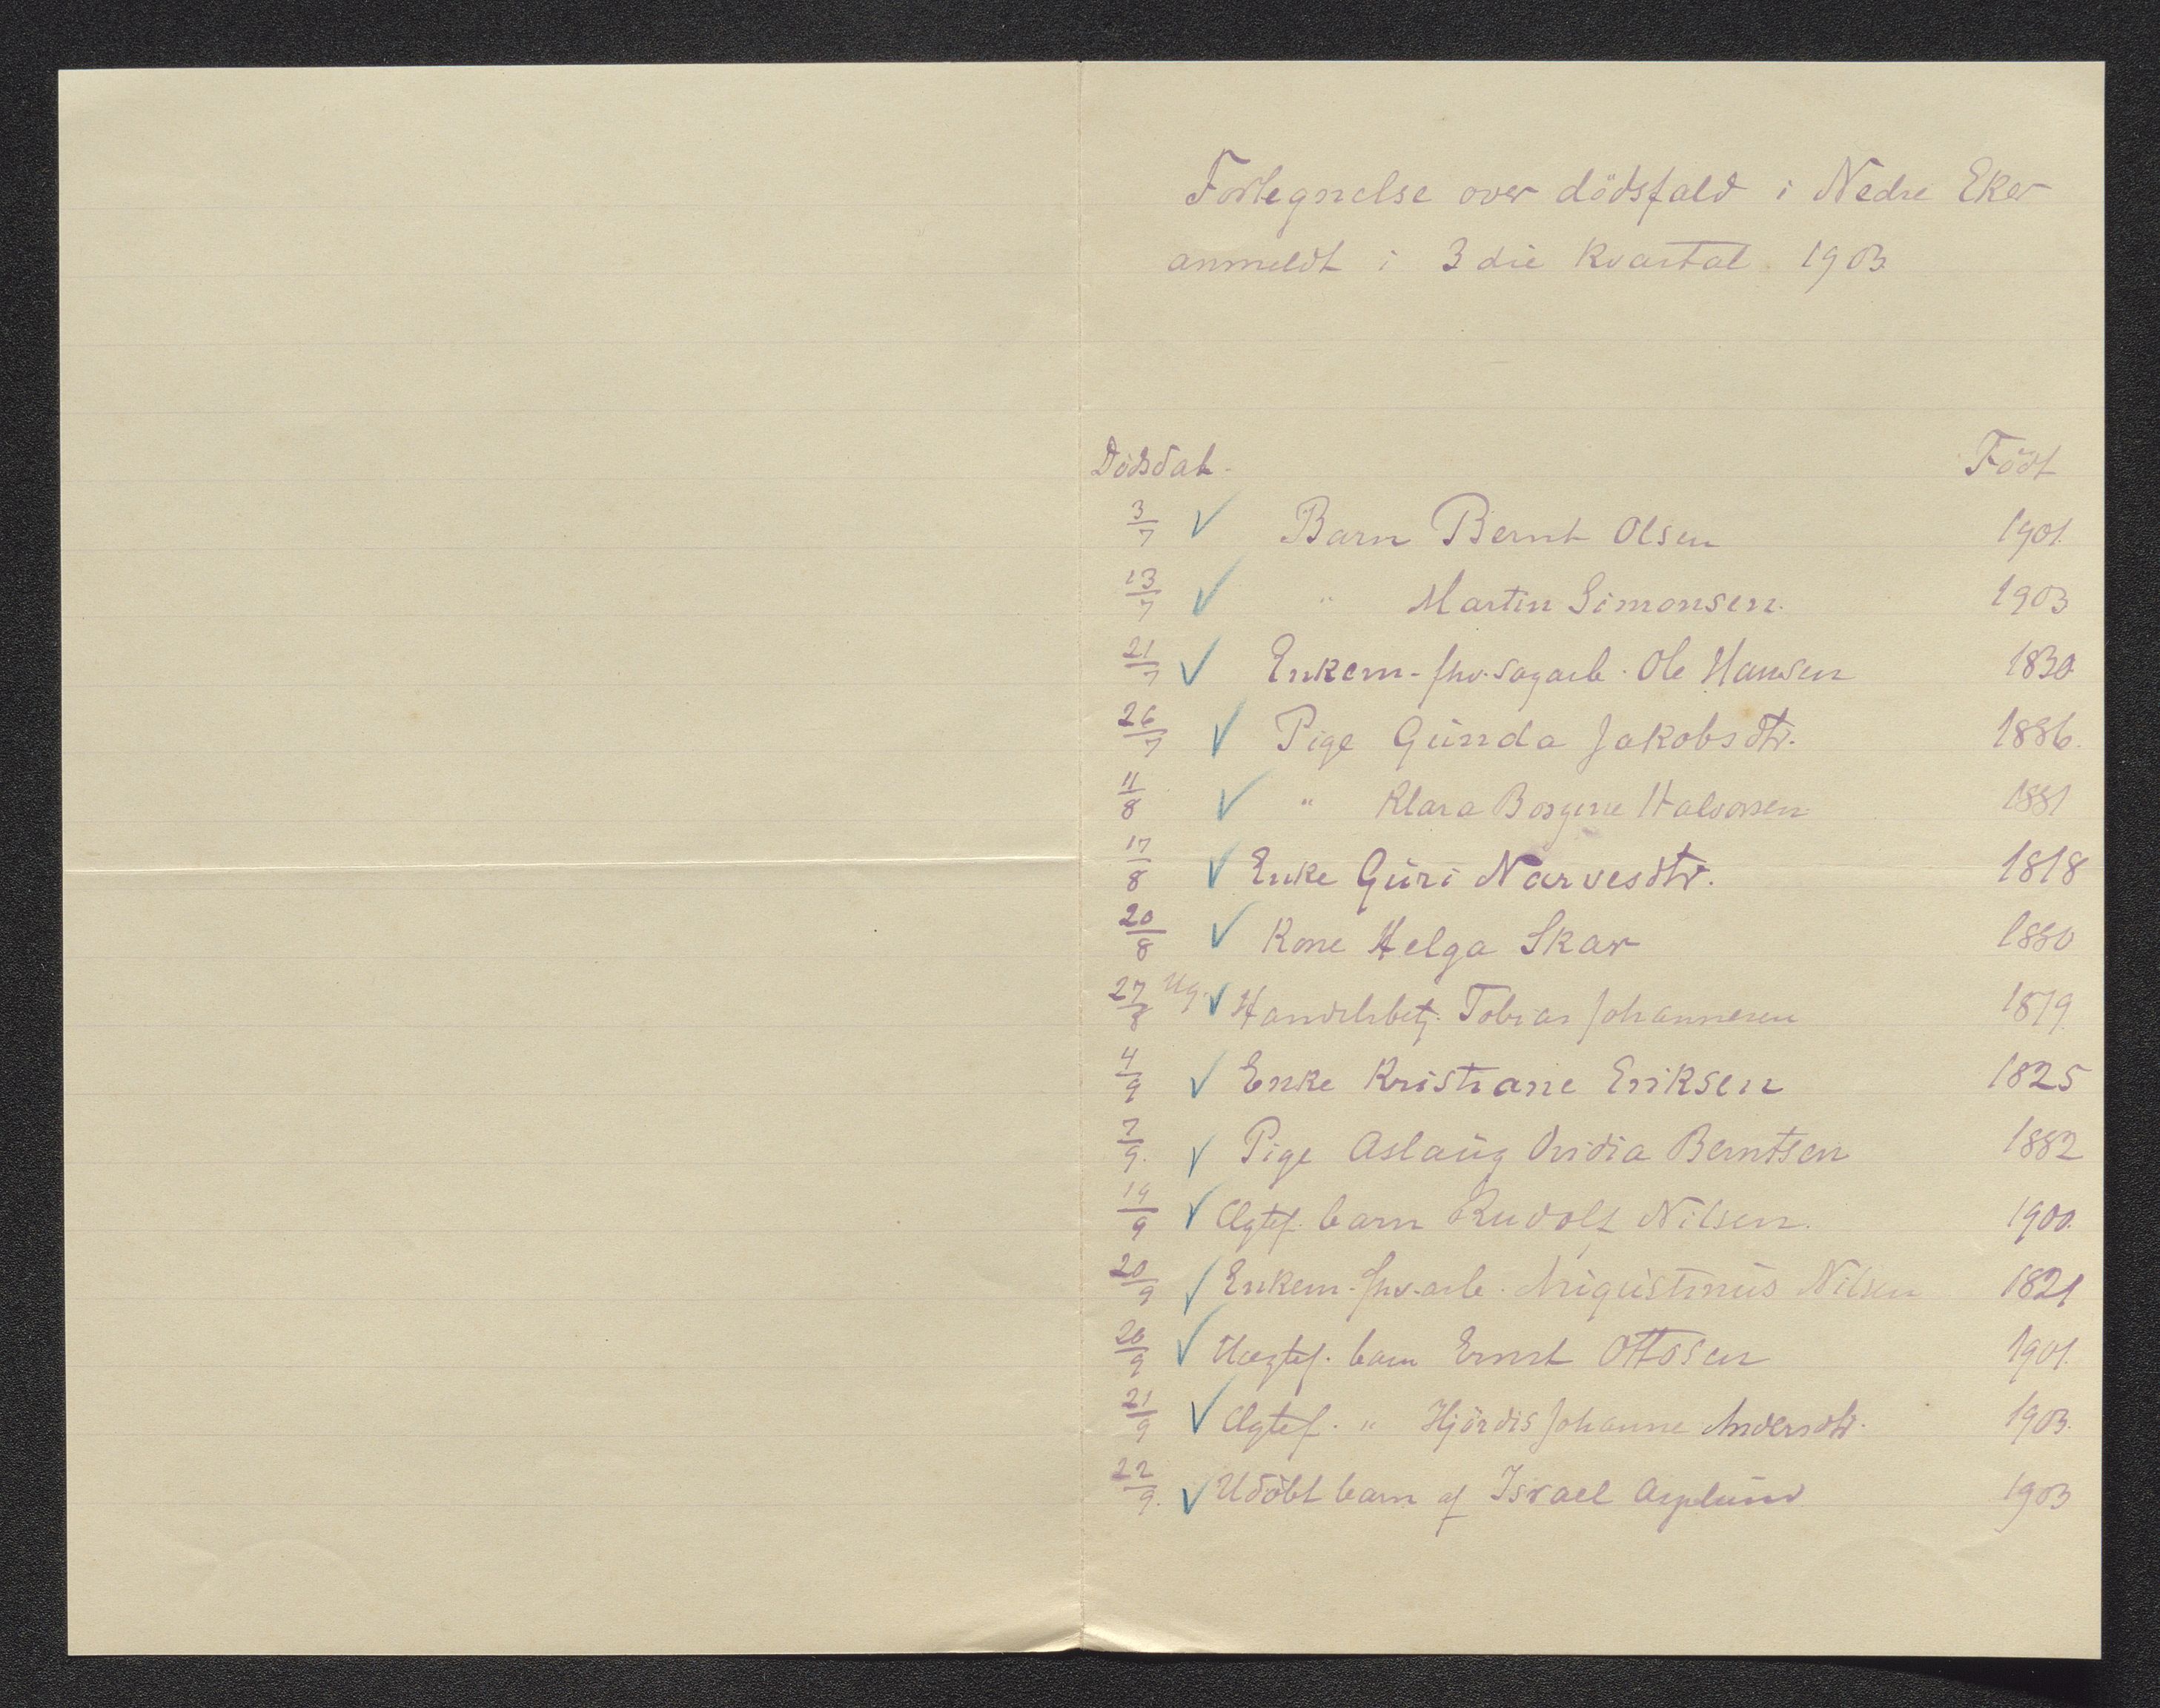 Fortegnelse over dödsfald i Nedre Eker
anmeldt i 3die kvartal 1903
Dödsdat. Födt
3/7 ✓ Barn Bernt Olsen 1901.
13/7 ✓ " Martin Simonsen. 1903
21/7 ✓ Enkem. fhv. sagarb. Ole Hansen 1830
26/7 ✓ Pige Gunda Jakobsdtr. 1886.
11/8 ✓ " Klara Borgine Halvorsen 1881
17/8 ✓ Enke Guri Narvesdtr. 1818
20/8 ✓ Kone Helga Skar 1880
27/8 Ug. ✓ Handelsbetj. Tobias Johannesen 1879
4/9 ✓ Enke Kristiane Eriksen 1825
7/9. ✓ Pige Aslaug Ovidia Berntsen 1882
19/9 ✓ Ægtef. barn Rudolf Nilsen. 1900.
20/9 ✓ Enkem. fhv. arb. Augustinus Nilsen 1821
20/9 ✓ Uægtef. barn Ernst Ottosen 1901.
21/9 ✓ Ægtef. " Hjördis Johanne Andersdtr. 1903.
22/9. ✓ Udöbt barn af Israel Asplund 1903